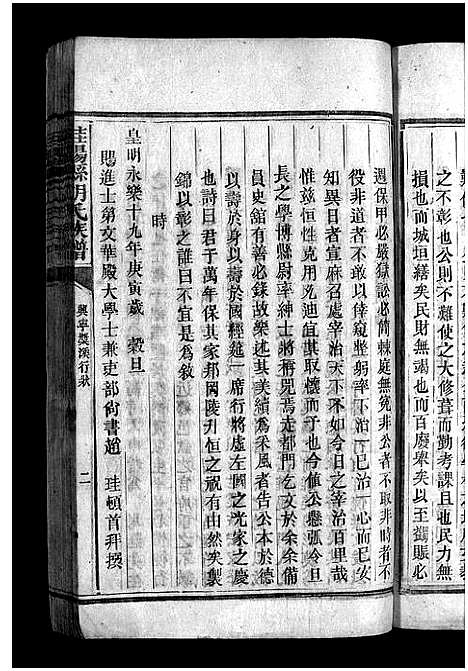 之不彰也公則不難使之大修葺而勤考課且也民力無
損也而城垣繕矣民財無竭也而百廢舉矣以至蠲賑必
選保甲必嚴獄訟必簡棘庭無冤非公者不取非時者不
役非道者不以倖窺整躬率下治一已治一心而已安
知異日者宣麻召處宰治天下不如今日之宰治百里哉
惟茲恒性克用允迪宜其取懷而予也今值公懸弧令旦
長之學博縣尉率紳士將稱兕焉走都門乞文於余余備
員史館有善必錄故樂述其美績為采風者告公本於德
以壽於身以壽於國經筵一席行將虛左國之光家之慶
詩曰君子萬年保其家邦岡陵升恒之祝有由然矣製
錦以彰之誰曰不宜是為敘
時
皇明永樂十九年庚寅歲 穀旦
賜進士第文華殿大學士兼吏部尚書趙 珪頓首拜撰
桂陽縣胡氏族譜
興寧 溪行狀
二